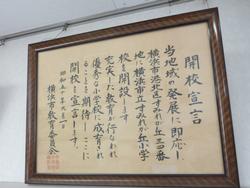 開校宣言
当地域の発展に即応し
横浜市港北区すみれが丘三四番
地に横浜市立すみれが丘小学
校を開設します
充実した教育が行なわれ
優秀な小学校に成育され
ることを期待し ここに
開校を宣言します
昭和五十年六月一日
横浜市教育委員会